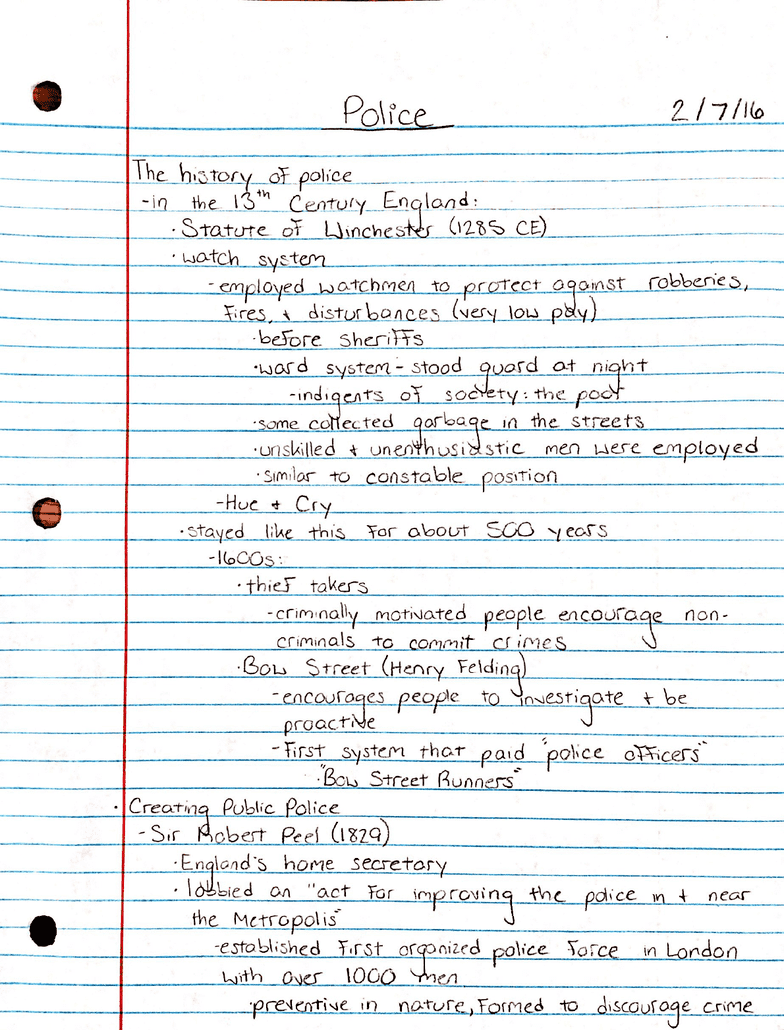 Police 2/7/16
The history of police
-in the 13th Century England:
·Statute of Winchester (1285 CE)
·watch system
-employed watchmen to protect against robberies,
fires, + disturbances (very low pay)
·before sheriffs
·ward system - stood guard at night
-indigents of society: the poor
·some collected garbage in the streets
·unskilled + unenthusiastic men were employed
·similar to constable position
-Hue + Cry
·stayed like this for about 500 years
-1600s:
·thief takers
-criminally motivated people encourage non-
criminals to commit crimes
·Bow Street (Henry Felding)
-encourages people to investigate + be
proactive
-First system that paid "police officers"
·"Bow Street Runners"
·Creating Public Police
-Sir Robert Peel (1829)
·England's home secretary
·lobbied an "act for improving the police in + near
the Metropolis"
-established first organized police force in London
with over 1000 men
·preventive in nature, formed to discourage crime